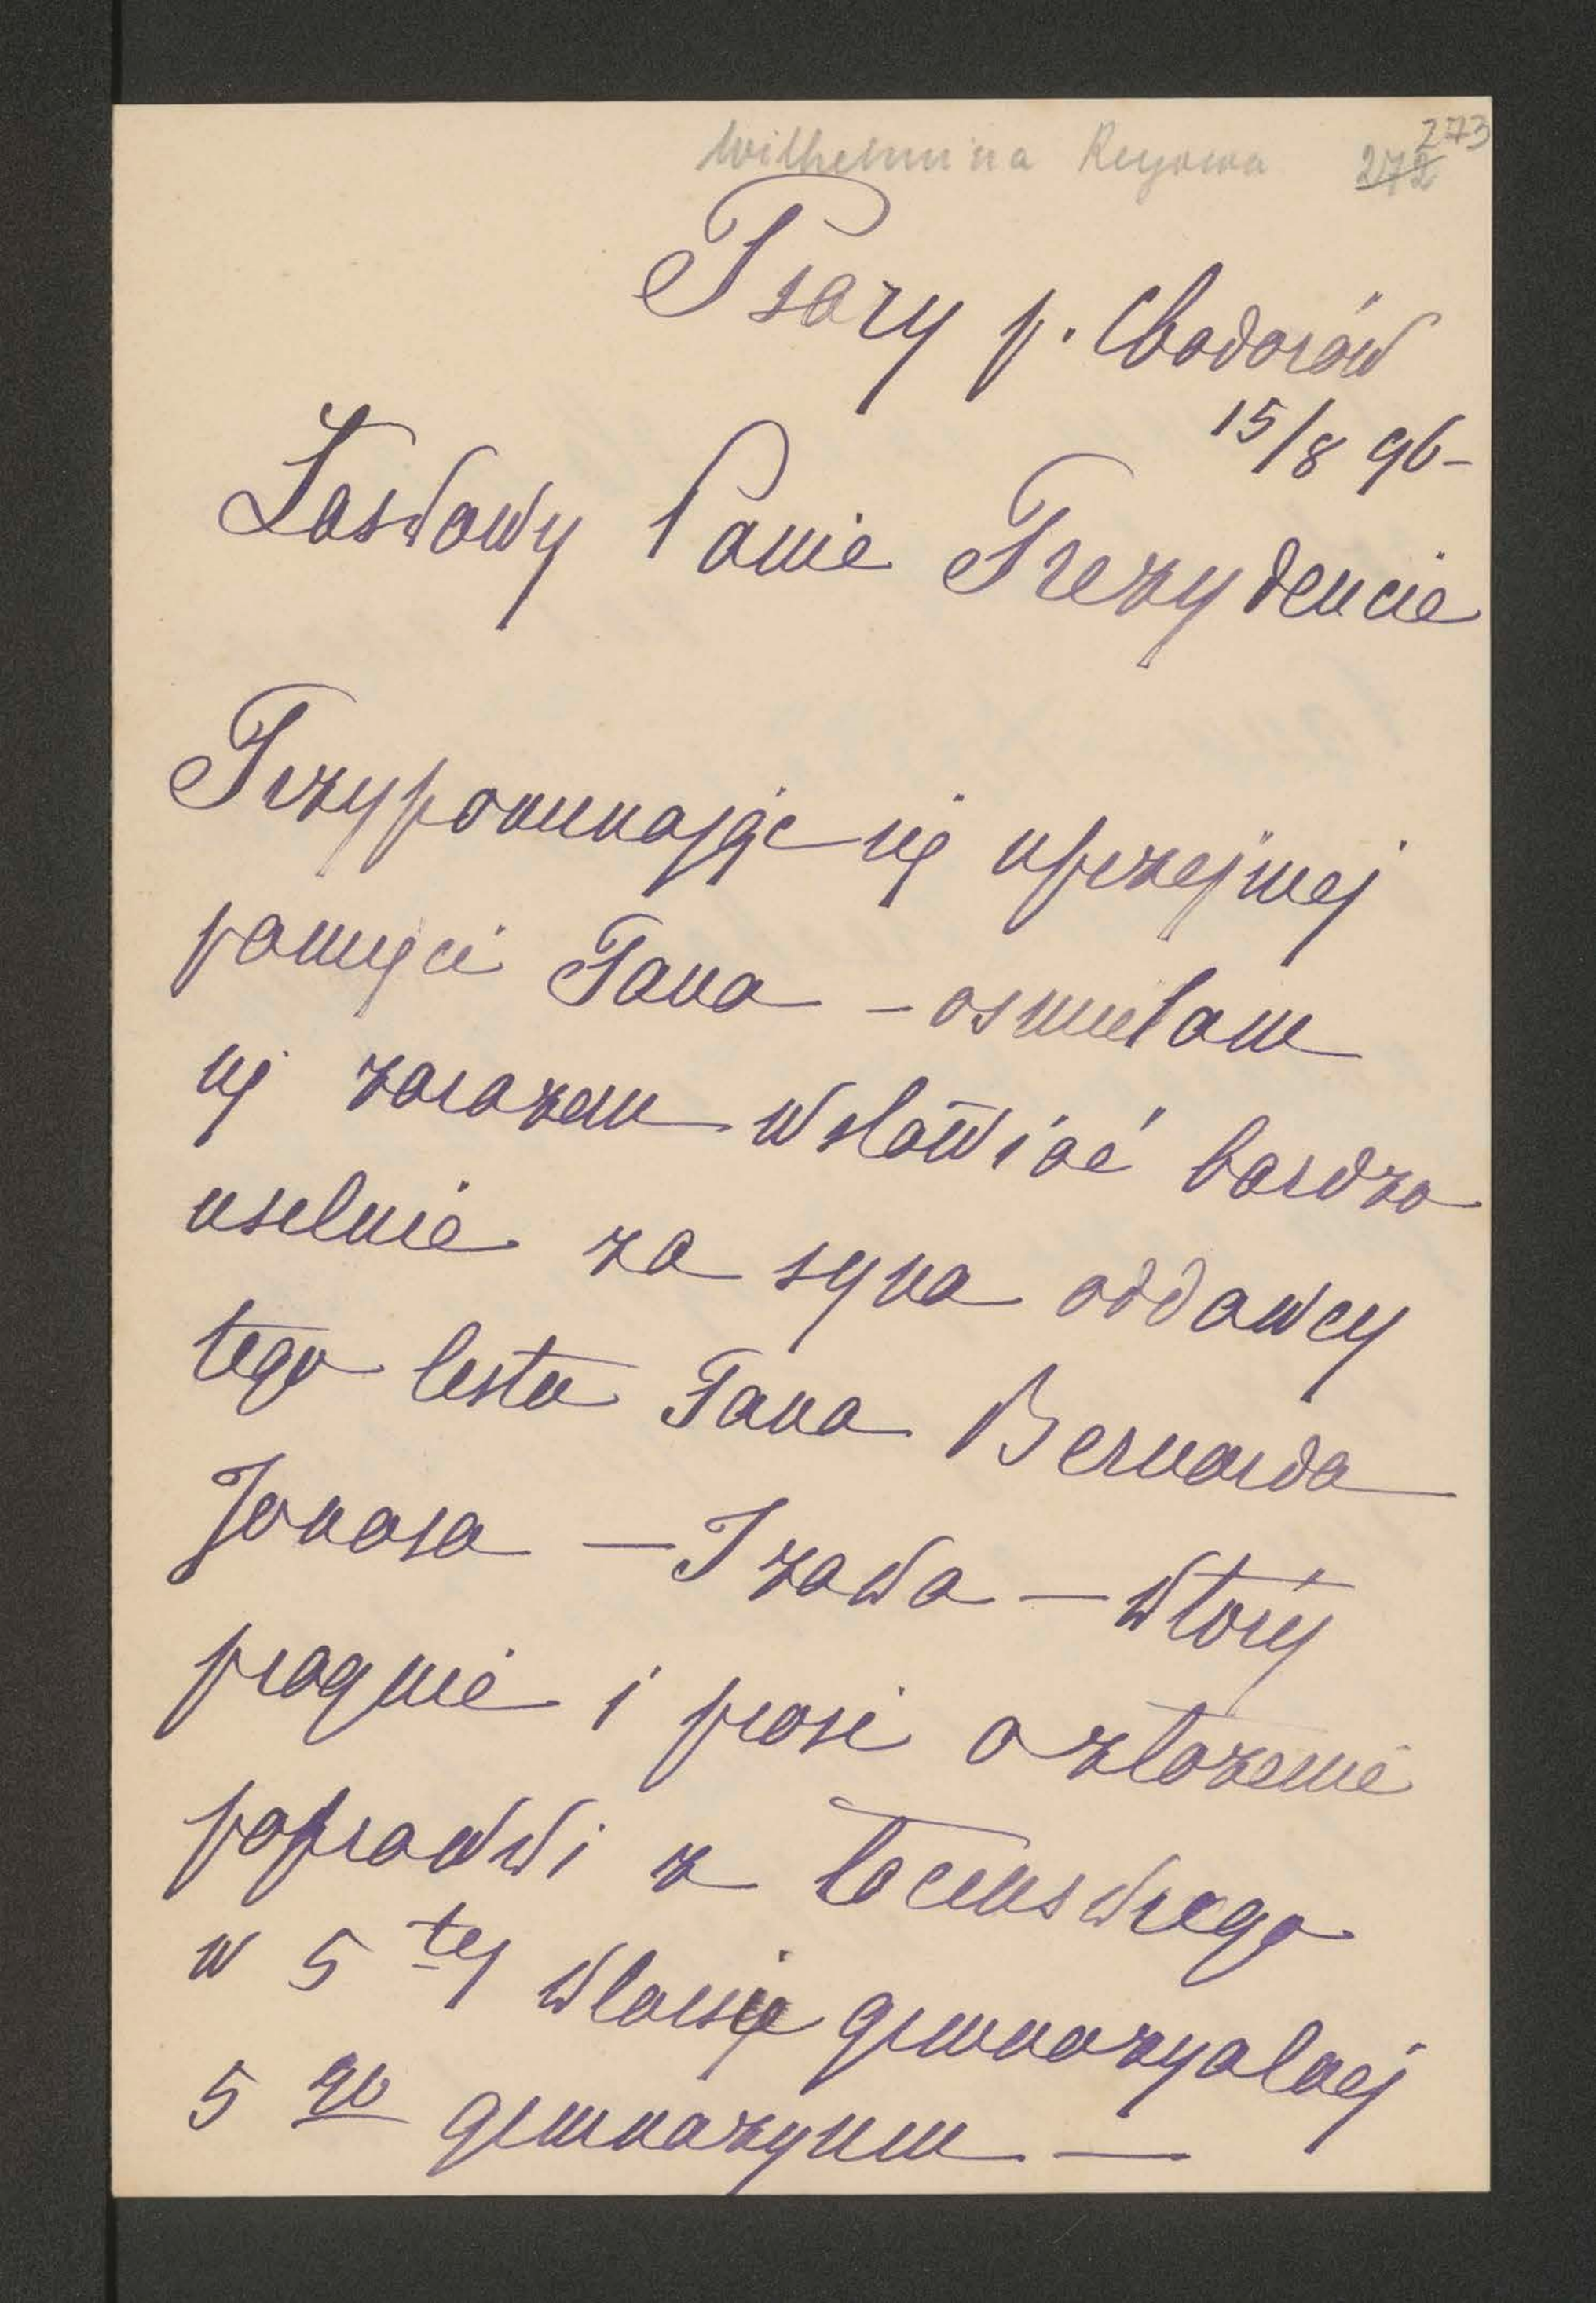 Wilhelmina Reyowa 273
272
Psary p. Chodorów
15/8 96-
Łaskawy Panie Prezydencie
Przypominając się uprzejmej
pamięci Pana – osmielam
się zarazem wstawiać bardzo
usilnie za syna oddawcy
tego listu Pana Bernarda
Jonasa – Izaka – który
pragnie i prosi o złożenie
poprawki z łacinskiego
w 5 tej klasie gimnazyalnej
5 go gimnazyum —